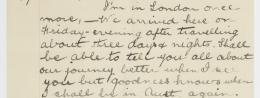 I'm in London once
more, - We arrived here on
Friday-evening after travelling
about three days & nights. Shall
be able to tell you all about
our journey better when I see
you but goodness knows when
I shall be in Aust again.